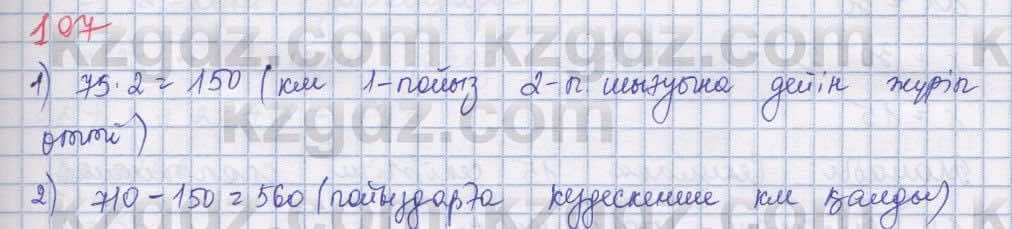 107
1) 75·2=150 (км 1-пойыз 2-п. шығуына дейін жүріп
өтті)
2) 710-150=560 (пойыздарға кездескенше км қалды)
kzgdz.com kzgdz.com
kzgdz.com